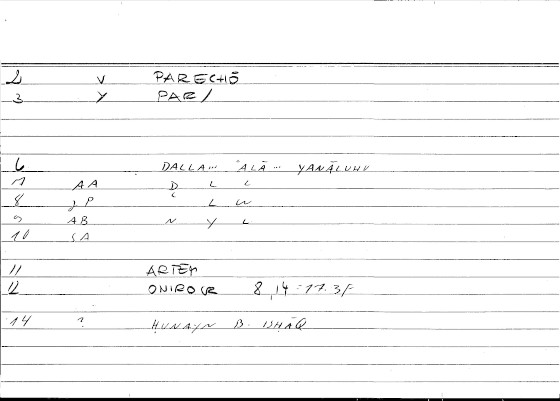 2 V PARECHŌ
3 Y PAR/
6 DALLA... ʿALĀ... YANĀLUHU
7 AA D L L
8 P L W
9 AB N Y L
10 SA
11 ARTEM
12 ONIROCR 8,14 = 17.3F
14 ? ḤUNAYN B. ISḤĀQ